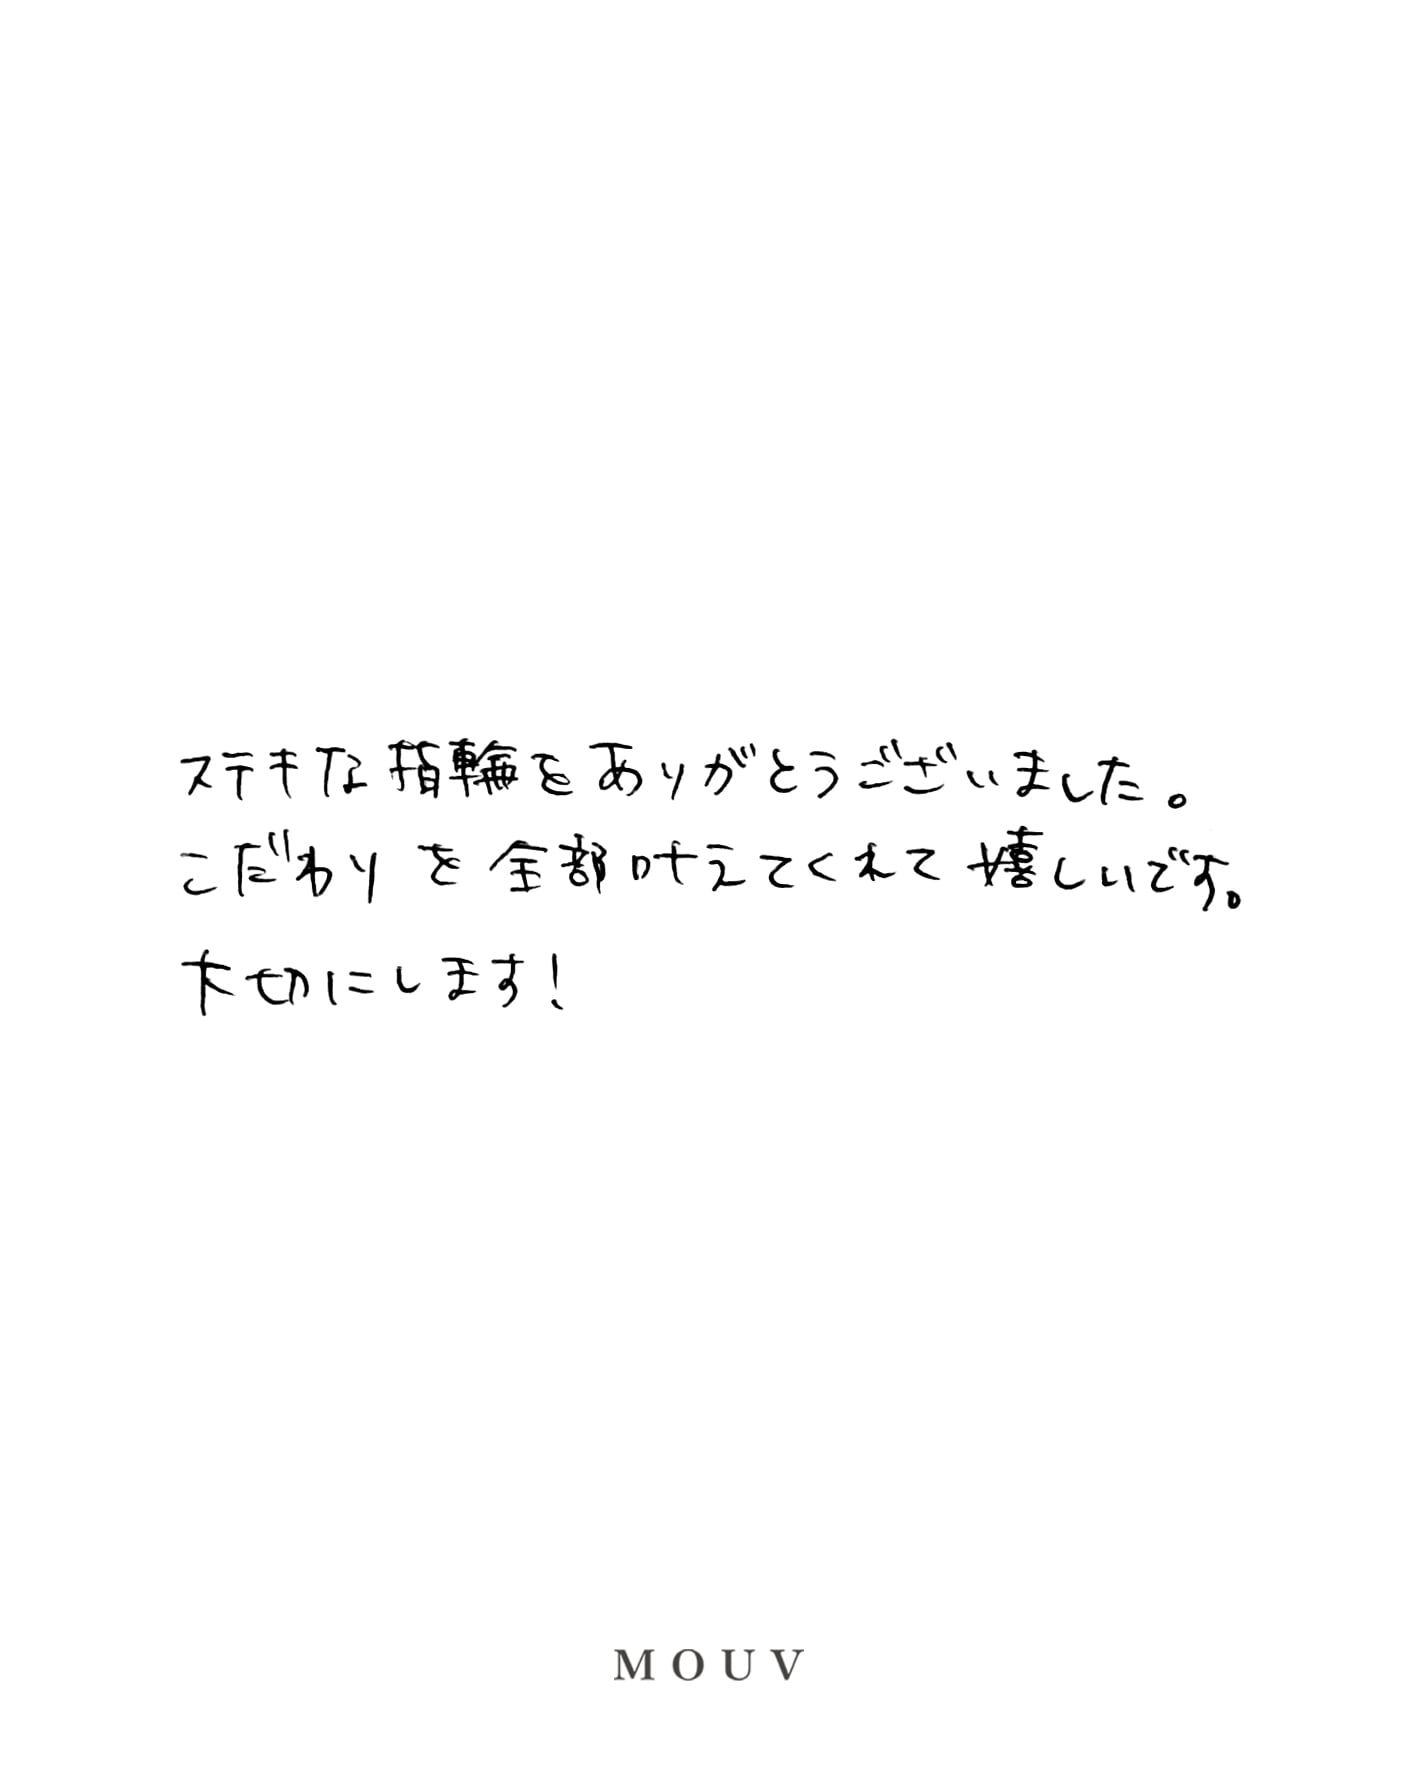 ステキな指輪をありがとうございました。
こだわりを全部叶えてくれて嬉しいです。
大切にします!
MOUV